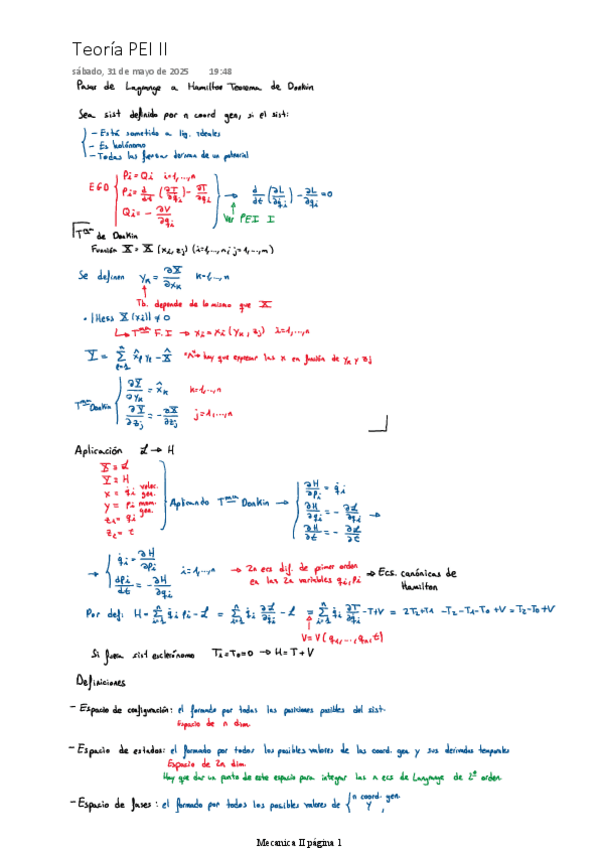 Teoría PEI II
sábado, 31 de mayo de 2025 19:48
Pasos de Lagrange a Hamilton Teorema de Donkin
Sea sist definido por n coord gen, si el sist:
- Está sometido a lig. ideales
- Es holónomo
- Todas las fuerzas derivan de un potencial
EGD { Pi = Qi i=1,...,n
Pi = d/dt (∂T/∂q̇i) - ∂T/∂qi
Qi = - ∂V/∂qi
→ d/dt (∂L/∂q̇i) - ∂L/∂qi = 0
Ver PEI I
Tma de Donkin
Función X = X (xi, zj) (i=1,...,n; j=1,...,m)
Se definen yk = ∂X/∂xk k=1,...,n
Tb. depende de lo mismo que X
· |Hess X (xi)| ≠ 0
↳ Tma F.I → xi = xi (yk, zj) i=1,...,n
Y = Σ x̂l yl - X̂ "^" hay que expresar las x en función de yk y zj
Tma Donkin { ∂Y/∂yk = x̂k k=1,...,n
∂Y/∂zj = - ∂X/∂zj j=1,...,n
Aplicación L → H
X = L
Y = H
x = q̇i veloc. gen.
y = pi mom. gen.
z1 = qi
z2 = t
Aplicando Tma Donkin → { ∂H/∂pi = q̇i
∂H/∂qi = - ∂L/∂qi →
∂H/∂t = - ∂L/∂t
→ { q̇i = ∂H/∂pi
dpi/dt = -∂H/∂qi
i=1,...,n → 2n ecs dif. de primer orden en las 2n variables qi, pi ⇒ Ecs. canónicas de Hamilton
Por def: H = Σ q̇i pi - L = Σ q̇i ∂L/∂q̇i - L = Σ q̇i ∂T/∂q̇i - T+V = 2T2+T1 -T2-T1-T0+V = T2-T0+V
V = V(q1,...,qn,t)
Si fuera sist esclerónomo T1=T0=0 → H=T+V
Definiciones
- Espacio de configuración: el formado por todas las posiciones posibles del sist.
Espacio de n dim.
- Espacio de estados: el formado por todos los posibles valores de las coord. gen y sus derivadas temporales
Espacio de 2n dim.
Hay que dar un punto de este espacio para integrar las n ecs de Lagrange de 2º orden
- Espacio de fases: el formado por todos los posibles valores de { n coord. gen.
y
Mecanica II página 1